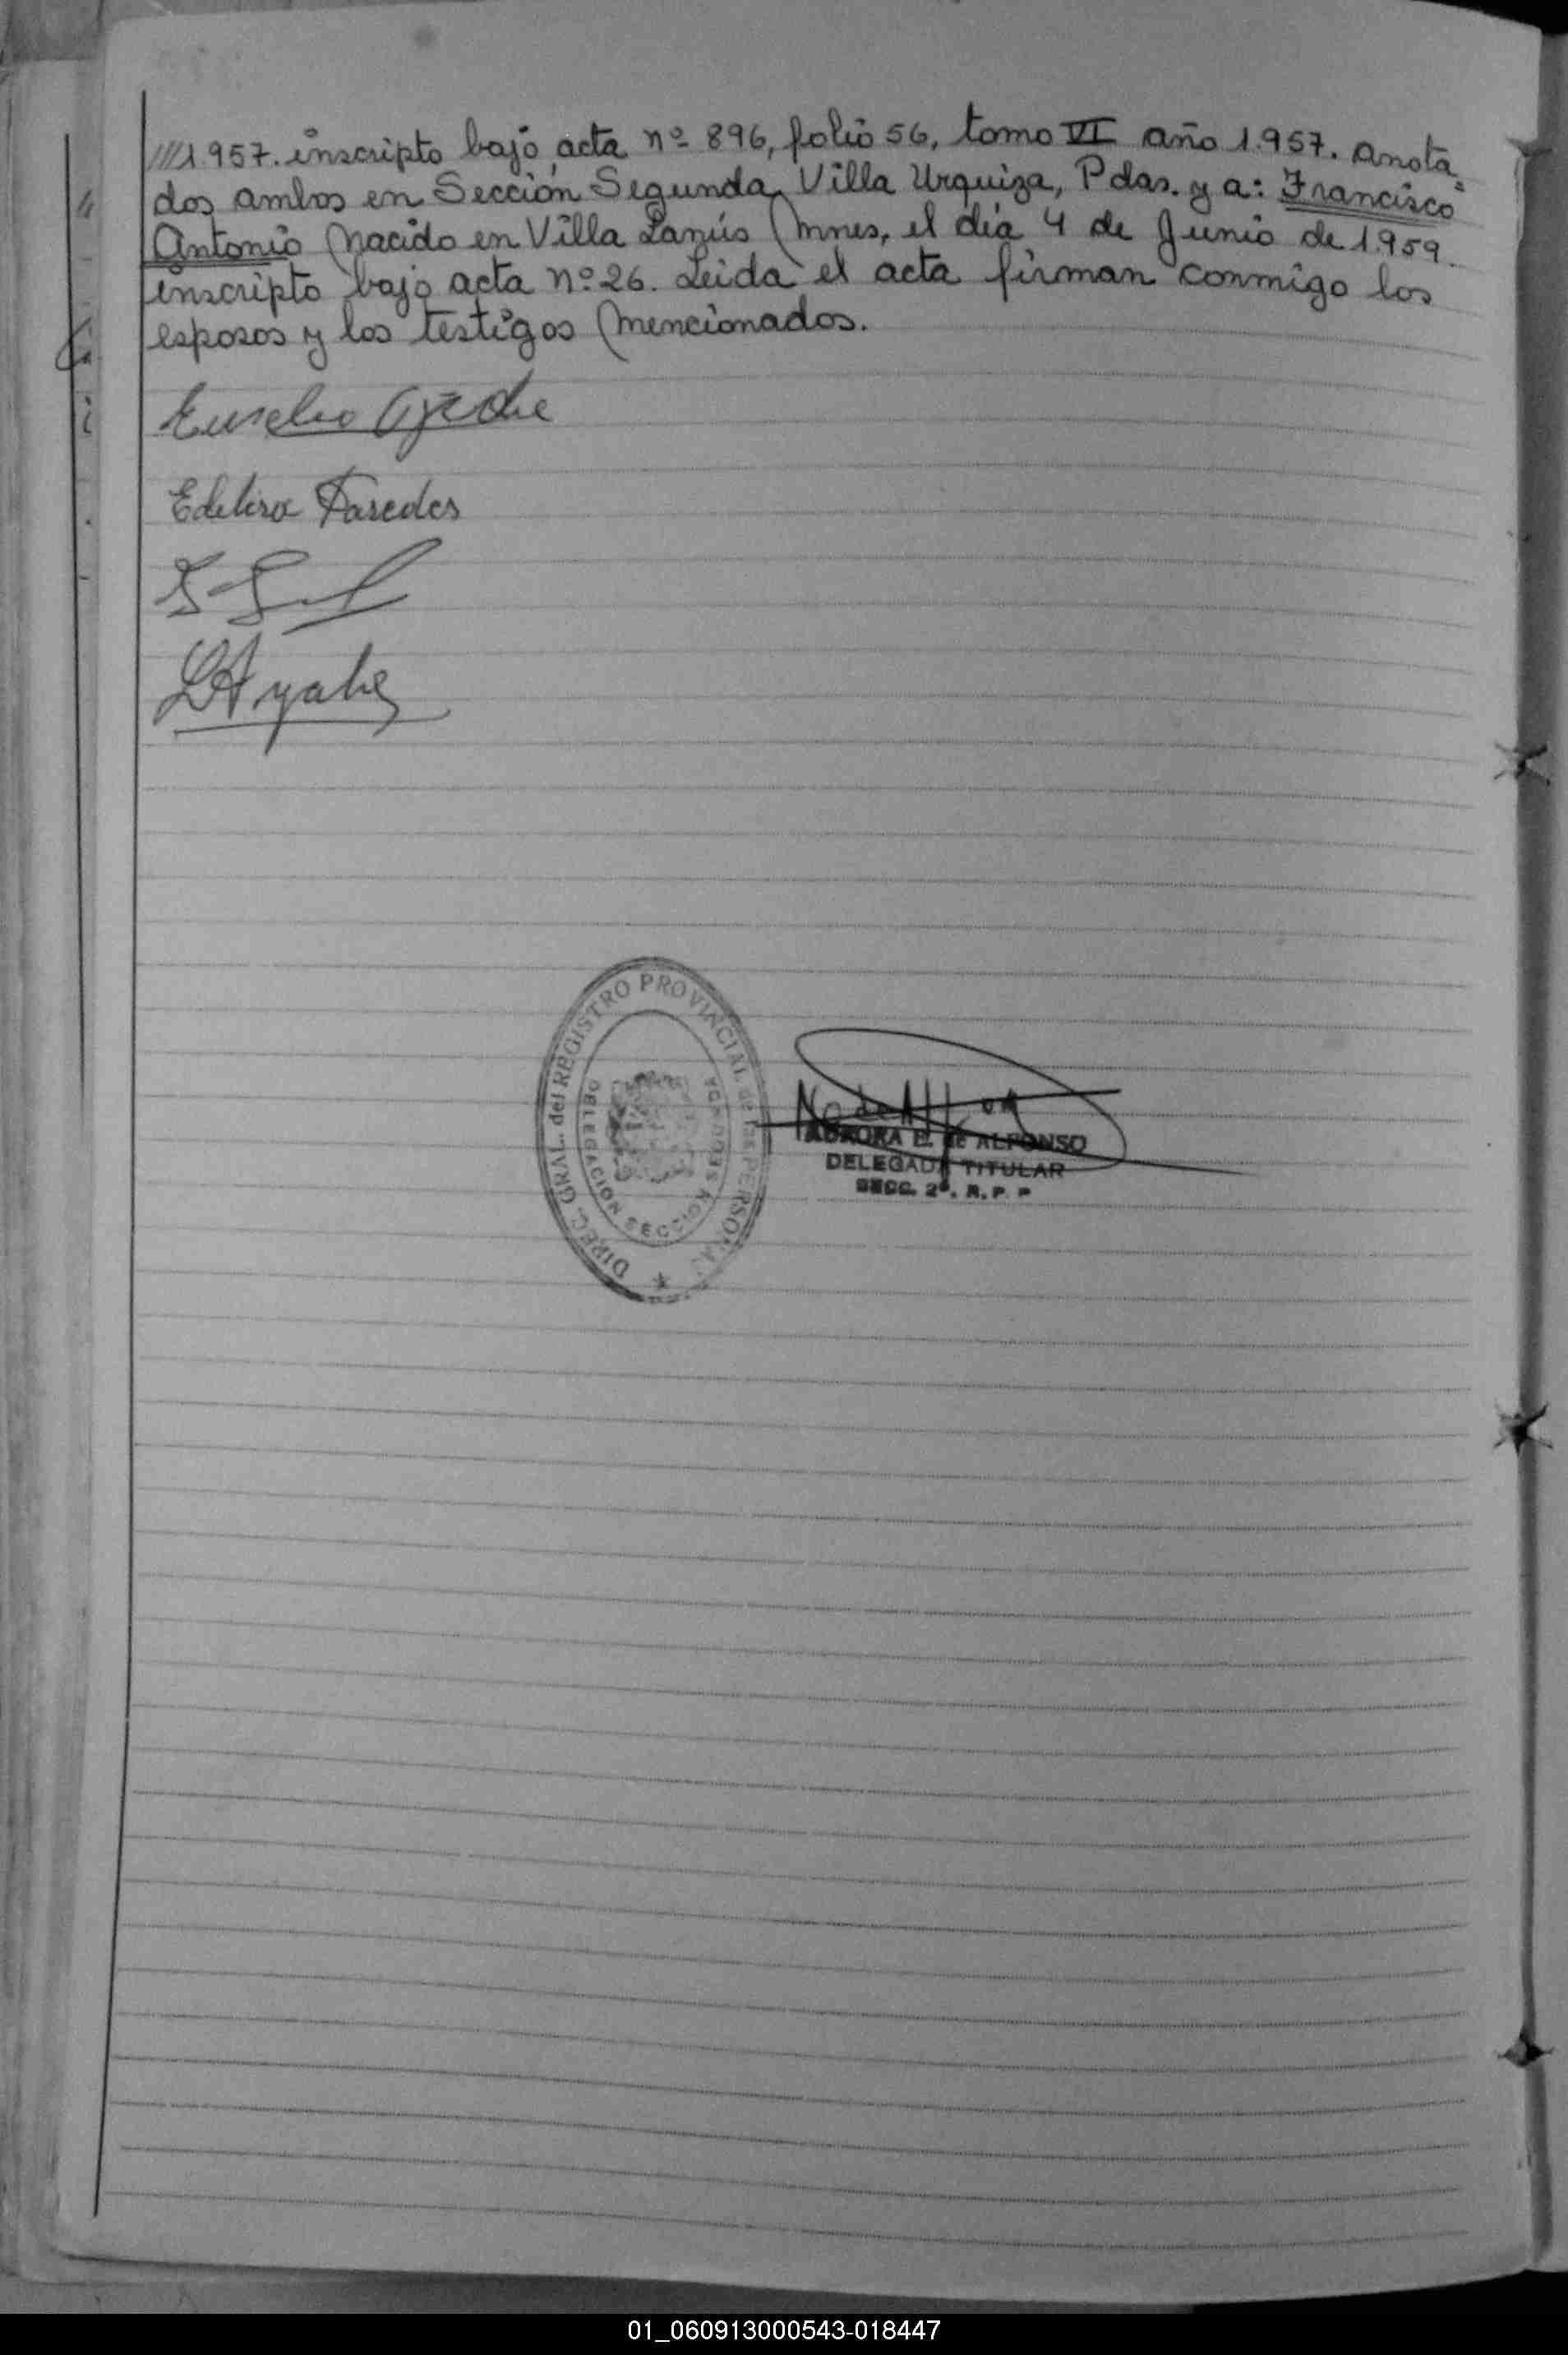 ///1.957. inscripto bajo acta nº 896, folio 56, tomo VI año 1.957. anota-
dos ambos en Sección Segunda, Villa Urquiza, Pdas. y a: Francisco
Antonio nacido en Villa Lanús Mnes, el día 4 de Junio de 1.959.
inscripto bajo acta nº 26. Leida el acta firman conmigo los
esposos y los testigos mencionados.
Eusebio
Paredes
DIREC. GRAL. del REGISTRO PROVINCIAL de las PERSONAS
DELEGACION SECCION SEGUNDA
AURORA E. de ALFONSO
DELEGADA TITULAR
SECC. 2ª. R. P. P
01_060913000543-018447